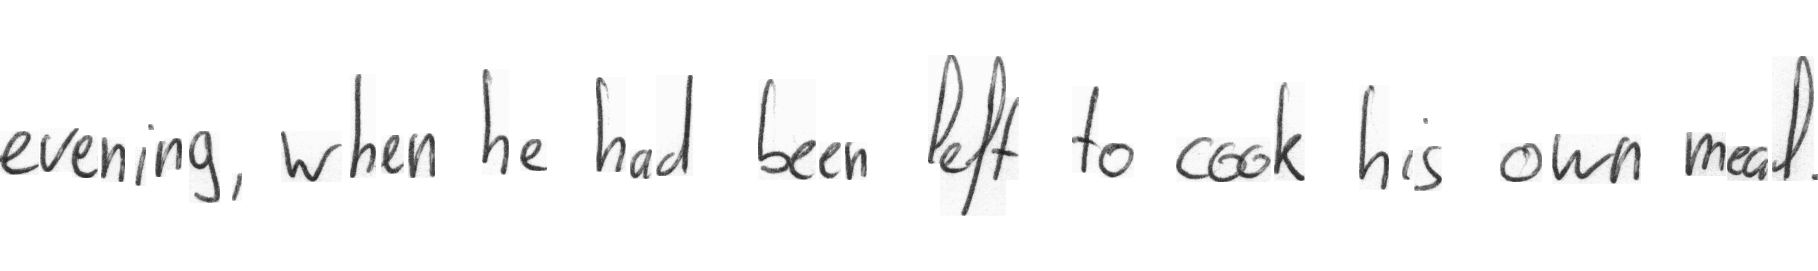 evening, when he had been left to cook his own meal.